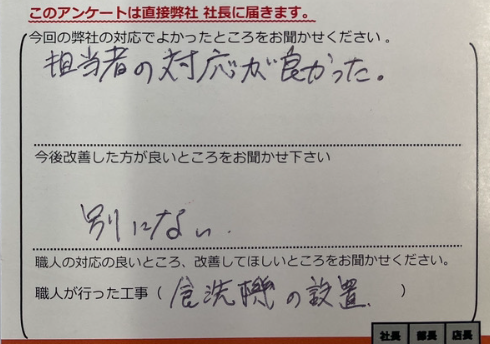 このアンケートは直接弊社 社長に届きます。
今回の弊社の対応でよかったところをお聞かせください。
担当者の対応が良かった。
今後改善した方が良いところをお聞かせ下さい
別にない.
職人の対応の良いところ、改善してほしいところをお聞かせください。
職人が行った工事（食洗機の設置.）
社長 部長 店長